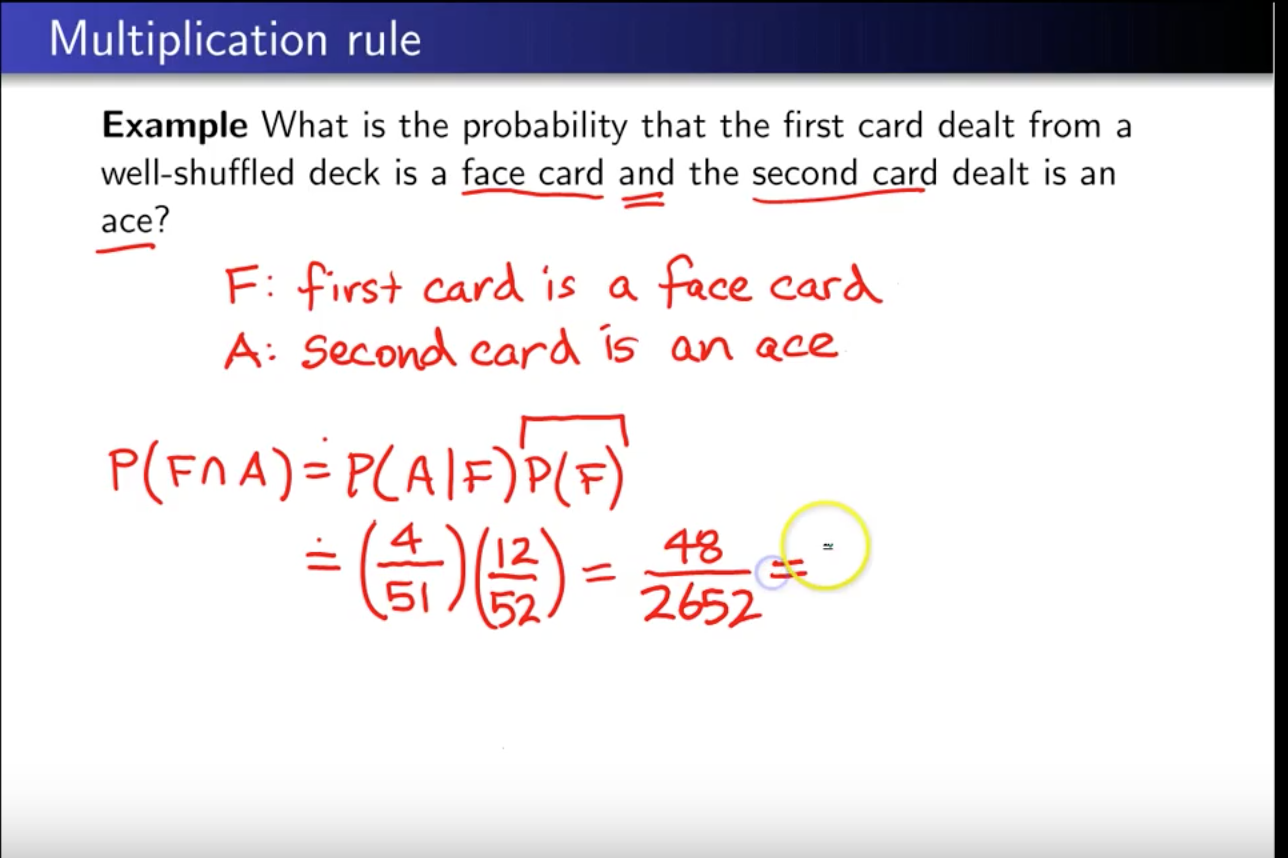 Multiplication rule
Example What is the probability that the first card dealt from a
well-shuffled deck is a face card and the second card dealt is an
ace?
F: first card is a face card
A: second card is an ace
P(F∩A) = P(A|F) P(F)
= (4/51)(12/52) = 48/2652 =